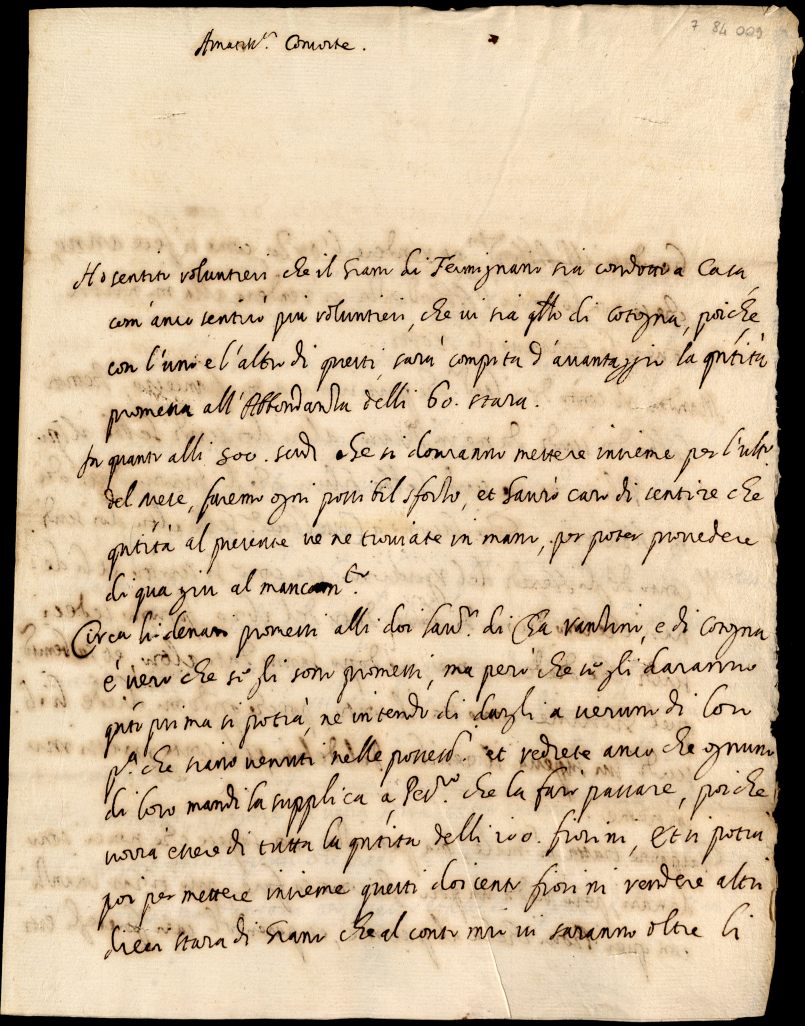 7 84 009
Amatis.ma Consorte.
Ho sentito voluntieri che il Grano di Fermignano sia condotto a Casa,
com'anco sentirò più voluntieri, che vi sia qllo di Cotogna, poiché
con l'uno e l'altro di questi, sarà compita d'avantaggio la qntità
promessa all'Abbondanza delli 60. stara.
In quanto alli 500. scudi che si dovranno mettere insieme per l'ulto
del mese, faremo ogni possibil sforzo, et havrò caro di sentire che
qntità al presente ve ne troviate in mano, per poter provedere
di qua giù al mancamto.
Circa li denari promessi alli doi lavri di Cà , e di Cotogna
è vero che se gli sono promessi, ma però che se gli daranno
qnto prima si potrà, né intendo di dargli a veruno di loro
pa. che siano venuti nelle possess. et vedrete anco che ognuno
di loro mandi la supplica à che la farò passare, poiche
vorrà essere di tutta la qntità delli 100. fiorini, et si potrà
poi per mettere insieme questi doicento fiorini vendere altri
dieci stara di Grano che al conto mio vi saranno oltre li